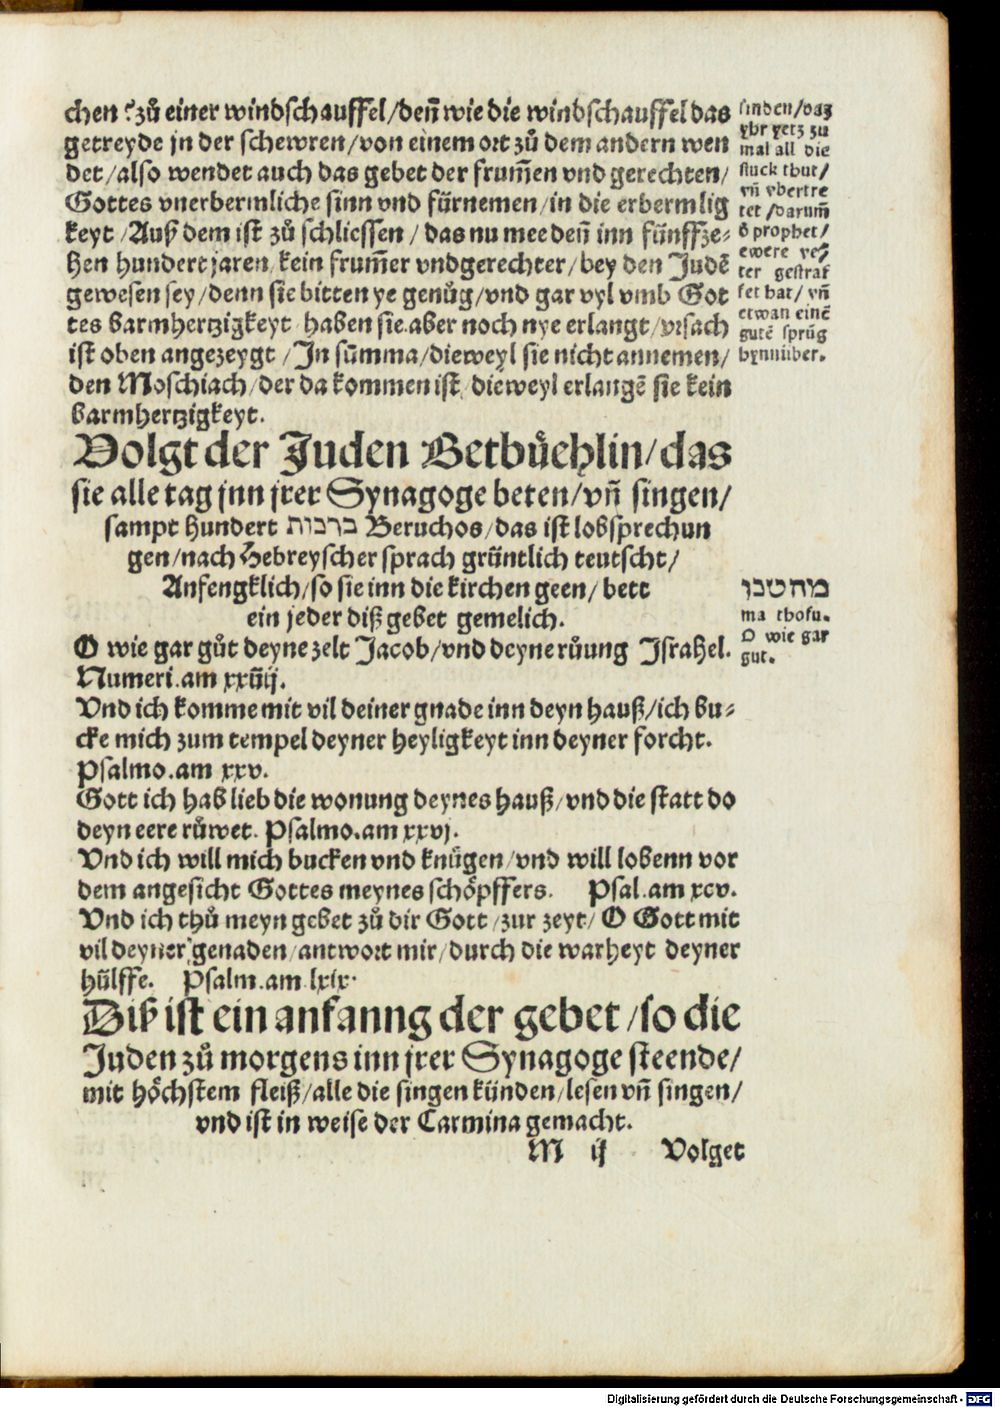 chen? zů einer windschauffel/deñ wie die windschauffel das
getreyde jn der schewren/von einem ort zů dem andern wen
det/also wendet auch das gebet der frum̃en vnd gerechten/
Gottes vnerbermliche sinn vnd fürnemen/in die erbermlig
keyt/Auß dem ist zů schliessen/das nu mee deñ inn fünffze-
hen hundert jaren/kein frum̃er vnd gerechter/bey den Judẽ
gewesen sey/denn sie bitten ye genůg/vnd gar vyl vmb Got
tes barmhertzigkeyt/haben sie aber noch nye erlangt/vrsach
ist oben angezeygt/In sum̃a/dieweyl sie nicht annemen/
den Moschiach/der da kommen ist/dieweyl erlangẽ sie kein
barmhertzigkeyt.
finden/daz
yhr yetz zu
mal all die
stuck thut/
vñ vbertre
tet/darum̃
d prophet/
ewere vet
ter gestraf
fet hat/vñ
etwan einẽ
gutẽ sprüg
hynnüber.
Volgt der Juden Betbůehlin/das
sie alle tag jnn jrer Synagoge beten/vñ singen/
sampt hundert ברבות Beruchos/das ist lobsprechun
gen/nach Hebreyscher sprach grüntlich teutscht/
Anfengklich/so sie inn die kirchen geen/bett
ein jeder diß gebet gemelich.
מהטבו
ma thofu.
O wie gar
gut.
O wie gar gůt deyne zelt Jacob/vnd deyne růung Israhel.
Numeri.am xxiiij.
Vnd ich komme mit vil deiner gnade inn deyn hauß/ich bu-
cke mich zum tempel deyner heyligkeyt inn deyner forcht.
Psalmo.am xxv.
Gott ich hab lieb die wonung deynes hauß/vnd die statt do
deyn eere růwet. Psalmo.am xxvj.
Vnd ich will mich bucken vnd knügen/vnd will lobenn vor
dem angesicht Gottes meynes schöpffers. Psal.am xcv.
Vnd ich thů meyn gebet zů dir Gott/zur zeyt/O Gott mit
vil deyner genaden/antwort mir/durch die warheyt deyner
hülffe. Psalm.am lxix.
Diß ist ein anfanng der gebet/so die
Juden zů morgens inn jrer Synagoge steende/
mit höchstem fleiß/alle die singen künden/lesen vñ singen/
vnd ist in weise der Carmina gemacht.
M ij Volget
Digitalisierung gefördert durch die Deutsche Forschungsgemeinschaft - DFG